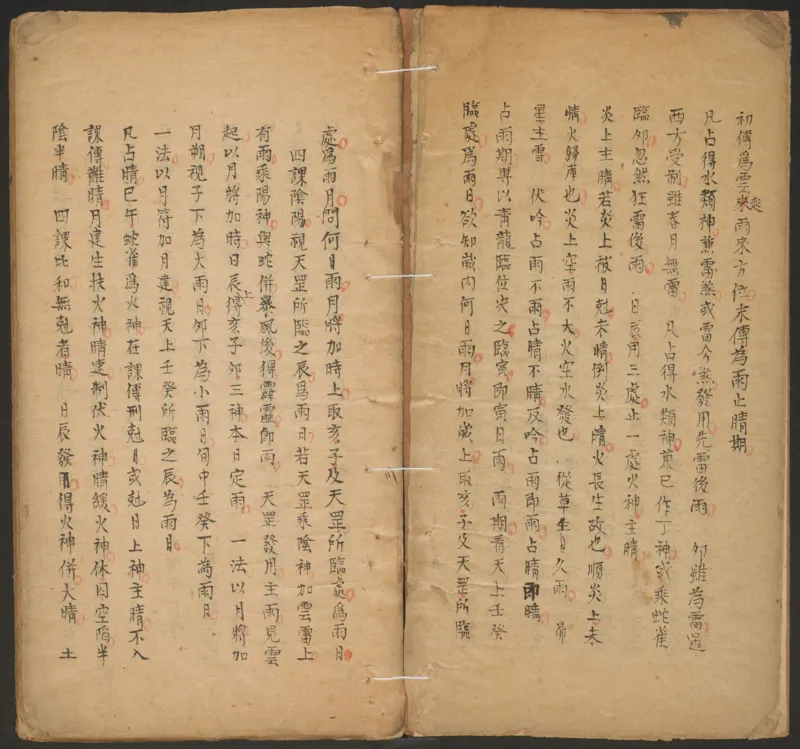 初傳爲雲來起雨來方位末傳為雨止晴期
凡占得水類神兼雷煞或雷令煞發用先雷後雨 夘雖為雷遇
西方受制雖春月無雷 凡占得水類神兼巳作丁神或乘蛇雀
臨夘忽然狂雷後雨 日辰用三處止一處火神主晴
炎上主晴若炎上被日尅末晴倒炎上晴火長生故也順炎上未
晴火歸庫也炎上空雨不大火空水發也 從草生日久雨 昴
星主雪 伏吟占雨不雨占晴不晴反吟占雨即雨占晴即晴
占雨期專以青龍臨位决之臨寅即寅日雨 雨期看天上壬癸
臨處為雨日欲知歲內何日雨月將加歲上取亥子及天罡所臨
處爲雨月問何日雨月將加時上取亥子及天罡所臨處爲雨日
四課陰陽視天罡所臨之辰爲雨日若天罡乘陰神加雲雷上
有雨乘陽神與蛇併暴風後得霹靂即雨 天罡發用主雨見雲
起以月將加時日辰上得亥子夘三神本日定雨 一法以月將加
月朔視子下為大雨日夘下為小雨日旬中壬癸下為雨日
一法以月符加月建視天上壬癸所臨之辰為雨日
凡占晴巳午蛇雀爲火神在課傳刑尅日或尅日上神主晴不入
課傳難晴月建生扶火神晴速制伏火神晴緩火神休囚空陷半
陰半晴 四課比和無尅者晴 日辰發用得火神併大晴 土